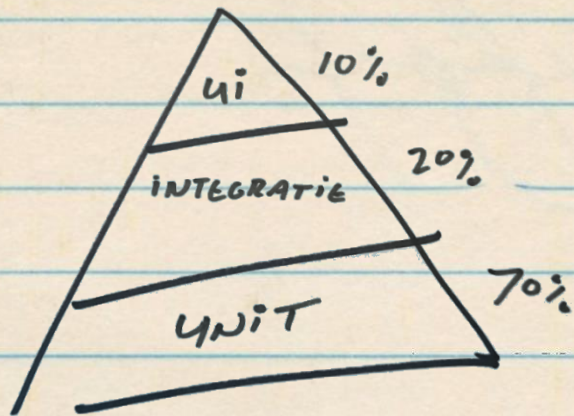 UI 10%
INTEGRATIE 20%
UNIT 70%